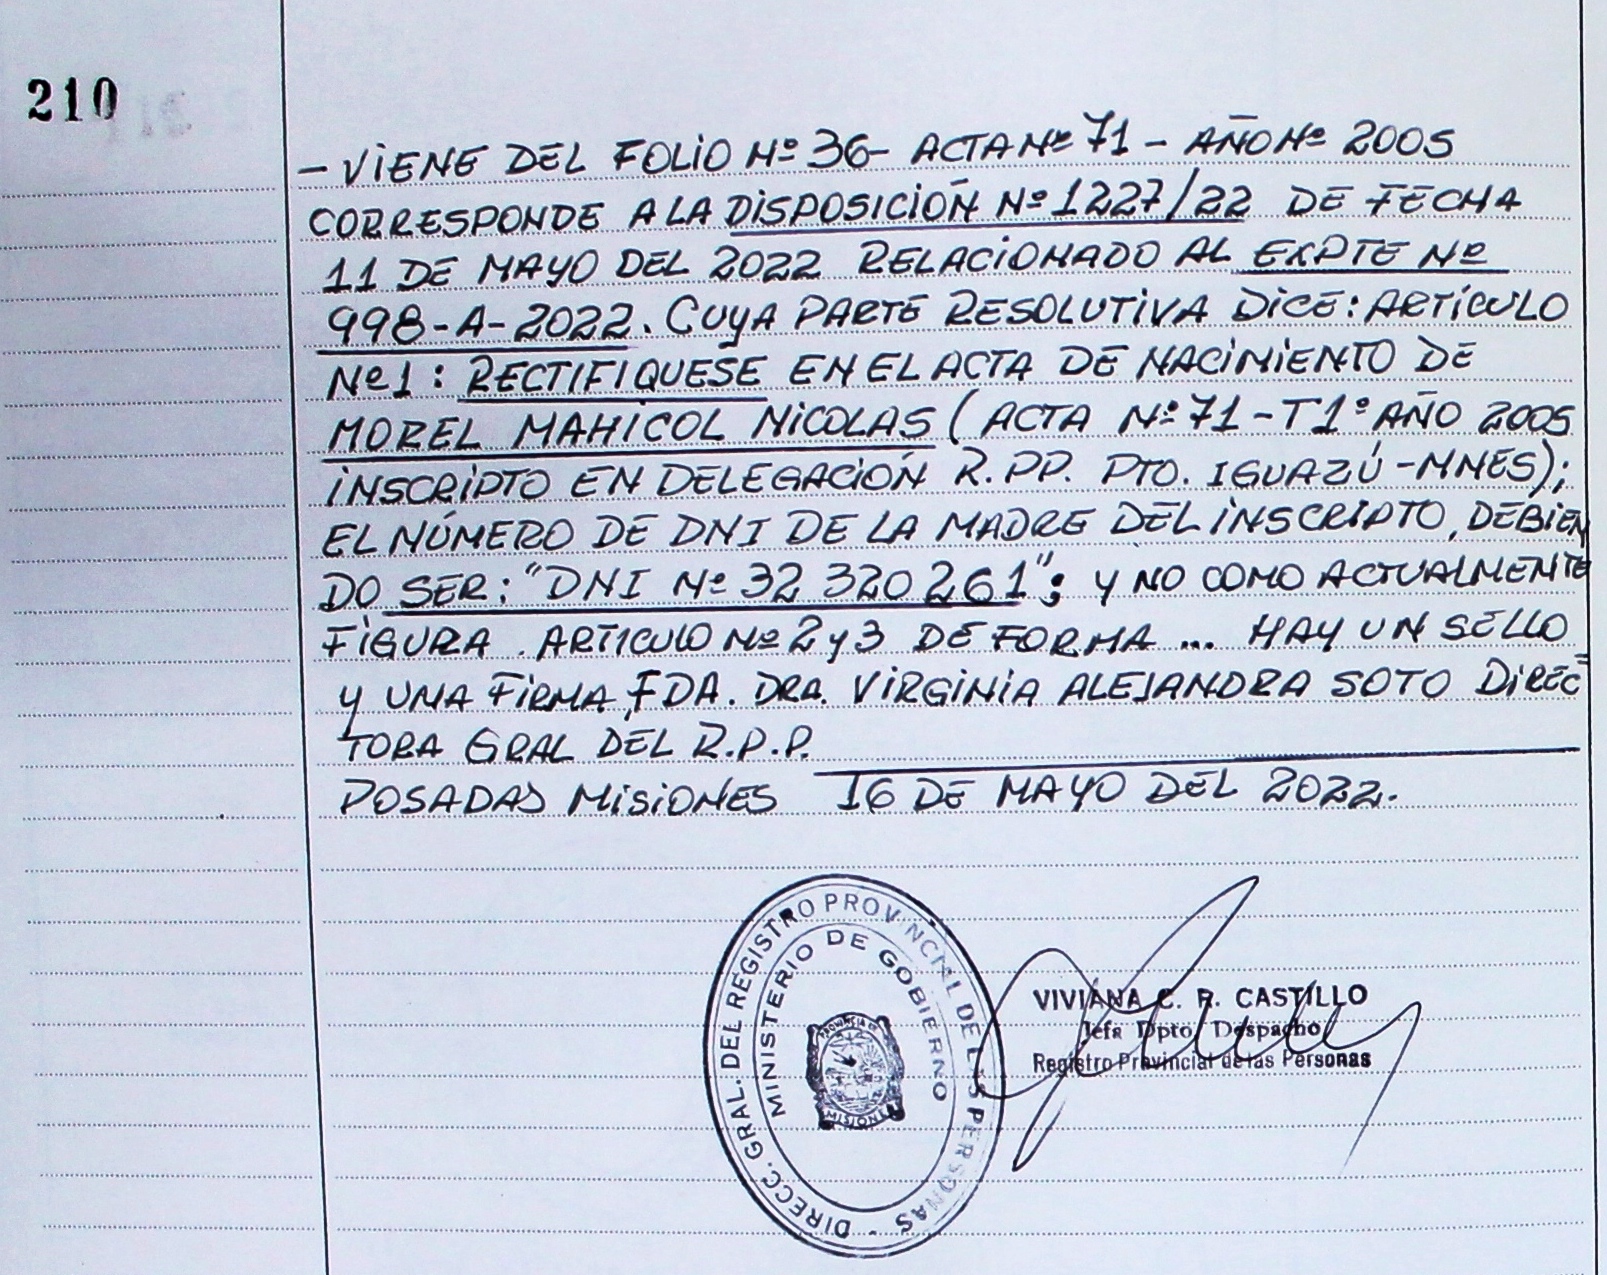 210
- VIENE DEL FOLIO Nº 36- ACTA Nº 71 - AÑO Nº 2005
CORRESPONDE A LA DISPOSICIÓN Nº 1227/22 DE FECHA
11 DE MAYO DEL 2022 RELACIONADO AL EXPTE Nº
998-A-2022. CUYA PARTE RESOLUTIVA DICE: ARTÍCULO
Nº1: RECTIFIQUESE EN EL ACTA DE NACIMIENTO DE
MOREL MAHICOL NICOLAS (ACTA Nº 71 - T1º AÑO 2005
INSCRIPTO EN DELEGACIÓN R.PP. PTO. IGUAZÚ - MNES);
EL NÚMERO DE DNI DE LA MADRE DEL INSCRIPTO, DEBIEN
DO SER: "DNI Nº 32 320 261"; Y NO COMO ACTUALMENTE
FIGURA. ARTICULO Nº 2 y 3 DE FORMA ... HAY UN SELLO
Y UNA FIRMA, FDA. DRA. VIRGINIA ALEJANDRA SOTO DIREC=
TORA GRAL DEL R.P.P.
POSADAS MISIONES 16 DE MAYO DEL 2022.
DIRECC. GRAL. DEL REGISTRO PROVINCIAL DE LAS PERSONAS -
MINISTERIO DE GOBIERNO
PROVINCIA DE
MISIONES
VIVIANA C. R. CASTILLO
Jefa Dpto. Despacho
Registro Provincial de las Personas